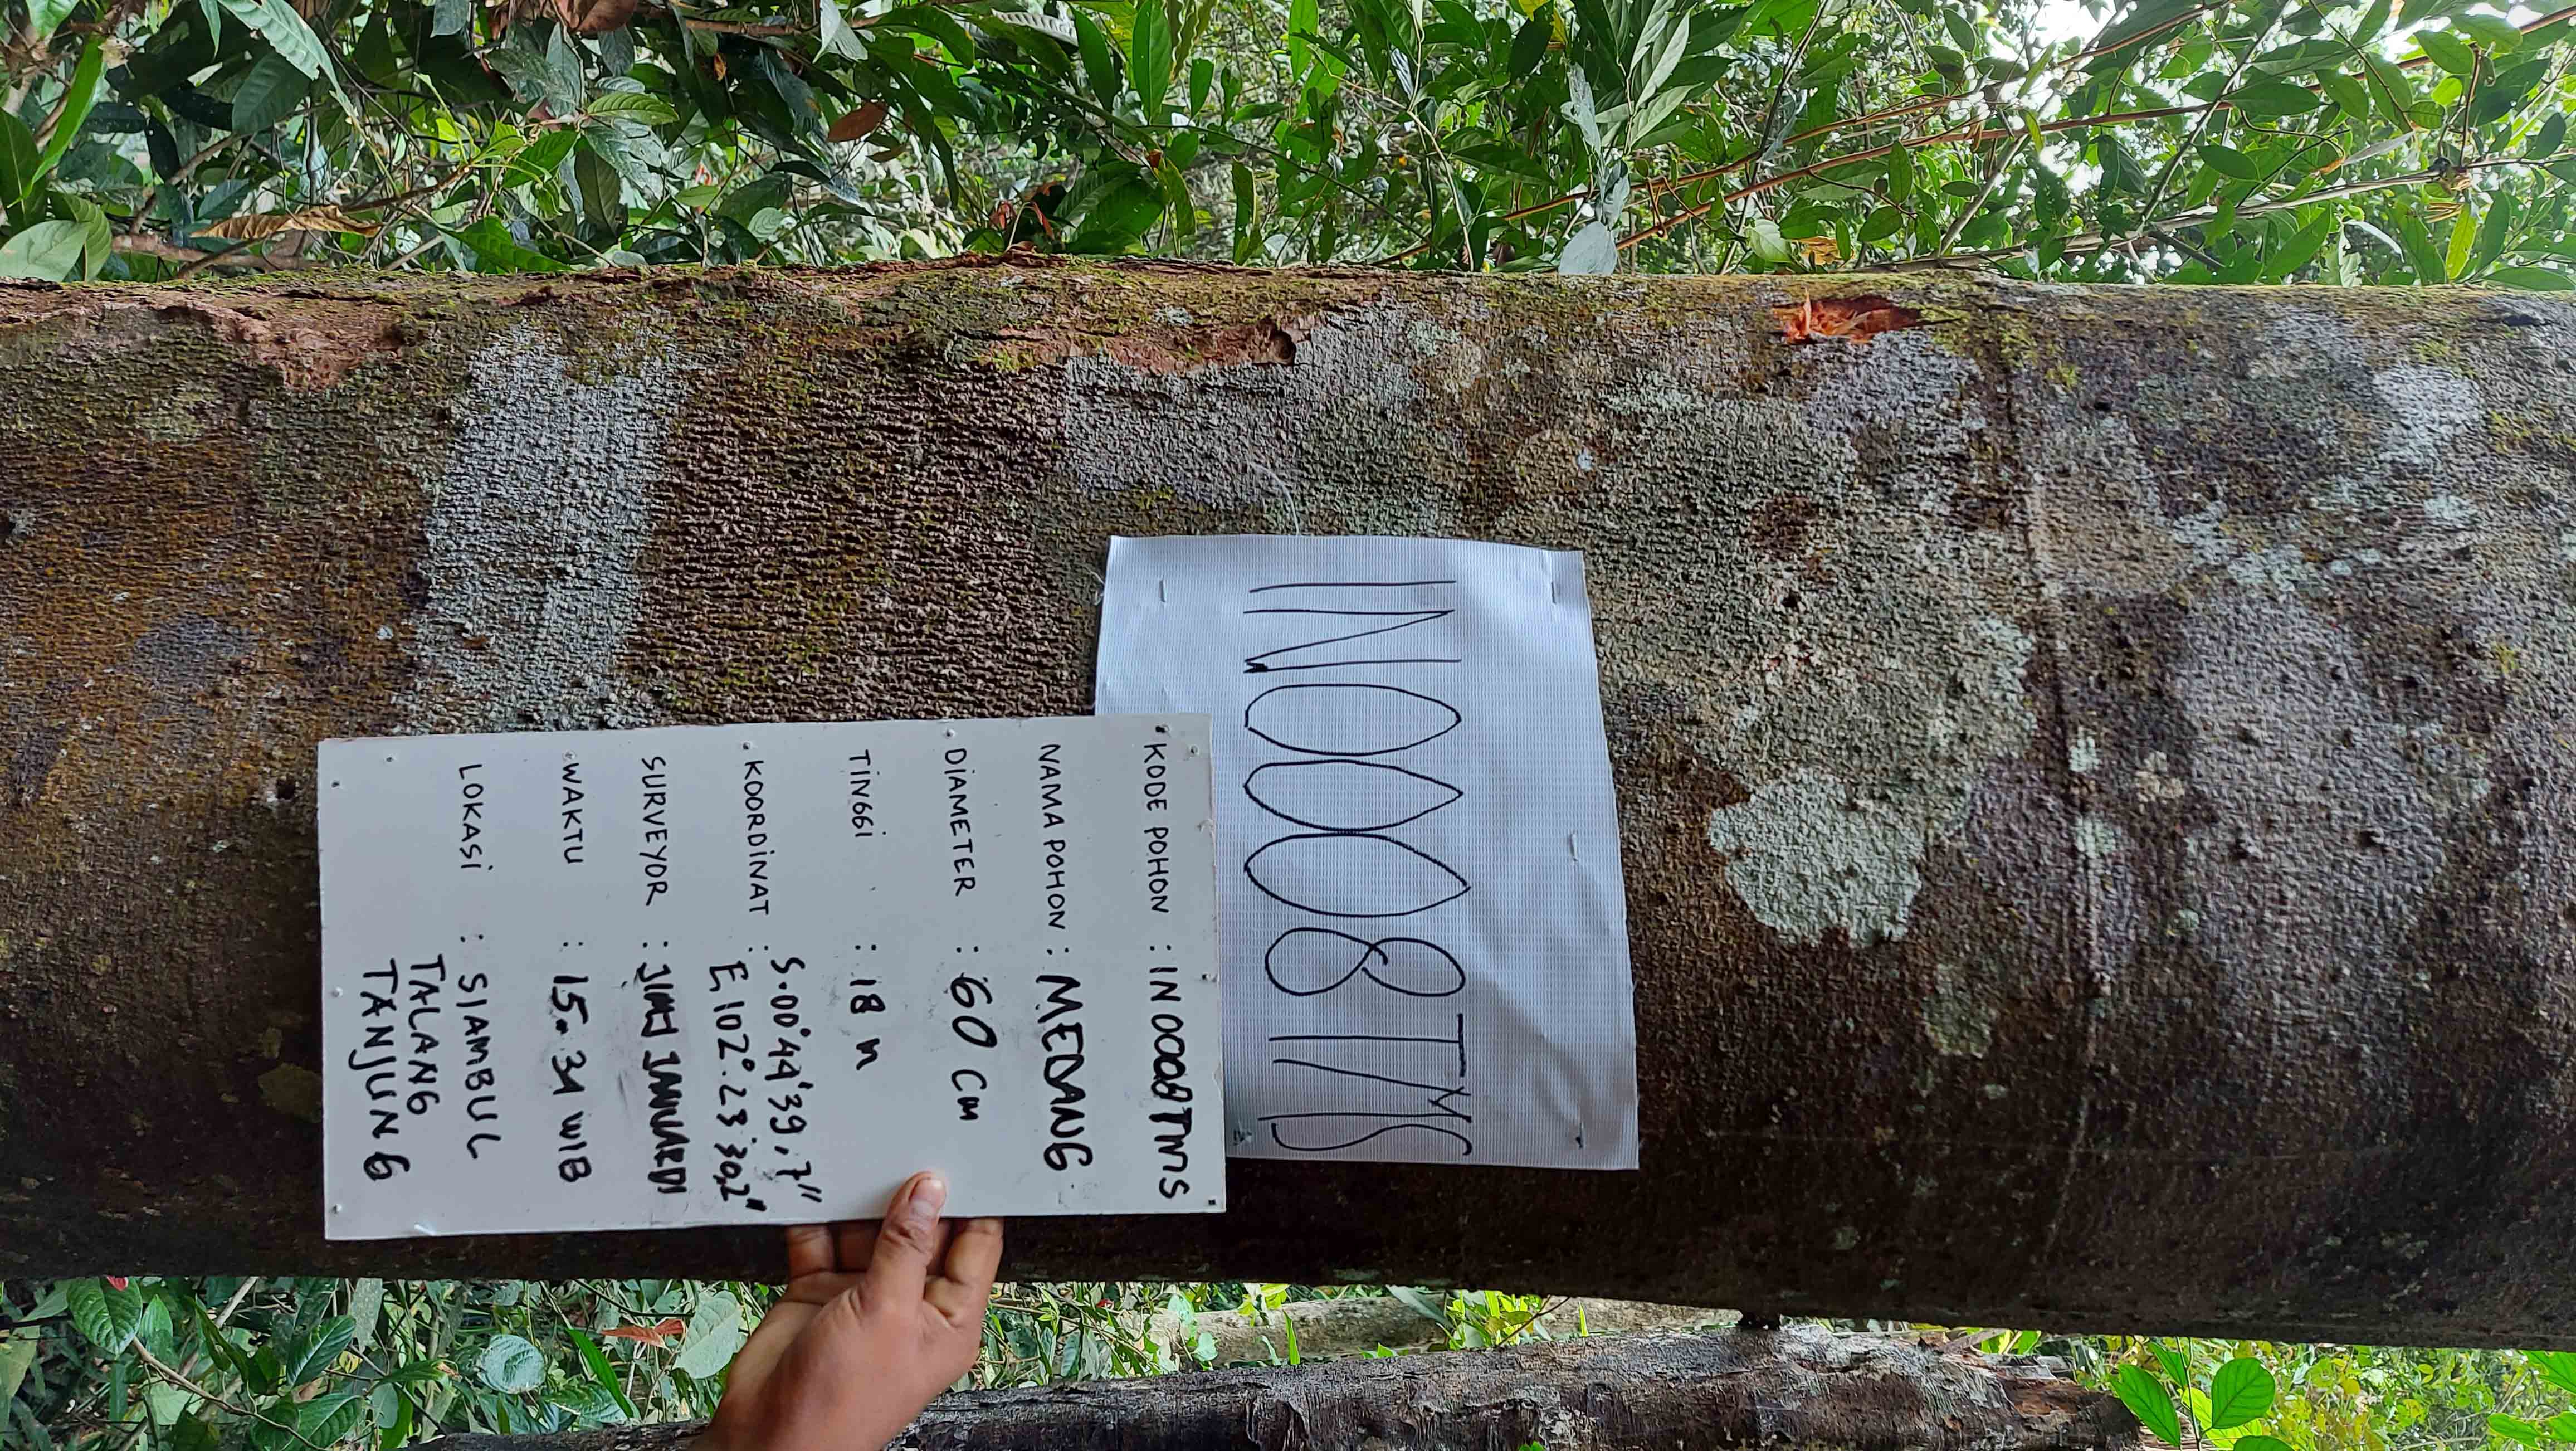 IN0008TMS
KODE POHON : IN0008TMS
NAMA POHON : MEDANG
DIAMETER : 60 Cm
TINGGI : 18 m
KOORDINAT : S.00°44'39,7"
E 102°.23'30,2"
SURVEYOR : JANUARDI
WAKTU : 15. 31 WIB
LOKASI : SIAMBUL
TALANG
TANJUNG